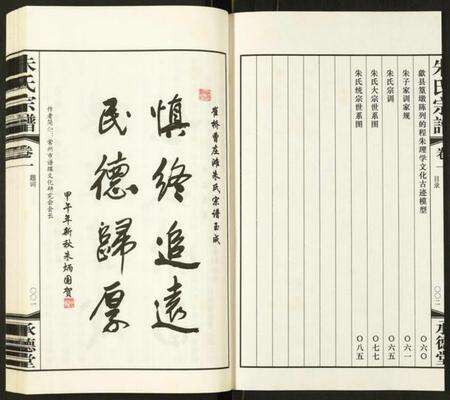 朱氏宗譜
卷一
目录
〇〇二
承德堂
歙县篁墩陈列的程朱理学文化古迹模型
〇六〇
朱子家训家规
〇六一
朱氏宗训
〇六五
朱氏大宗世系图
〇七七
朱氏统宗世系图
〇八五
崔桥曹庄滩朱氏宗谱玉成
慎终追遠
民德歸厚
甲午年新秋朱炳国賀
作者简介：常州市谱牒文化研究会会长
朱氏宗譜
卷一
题词
〇〇一
承德堂